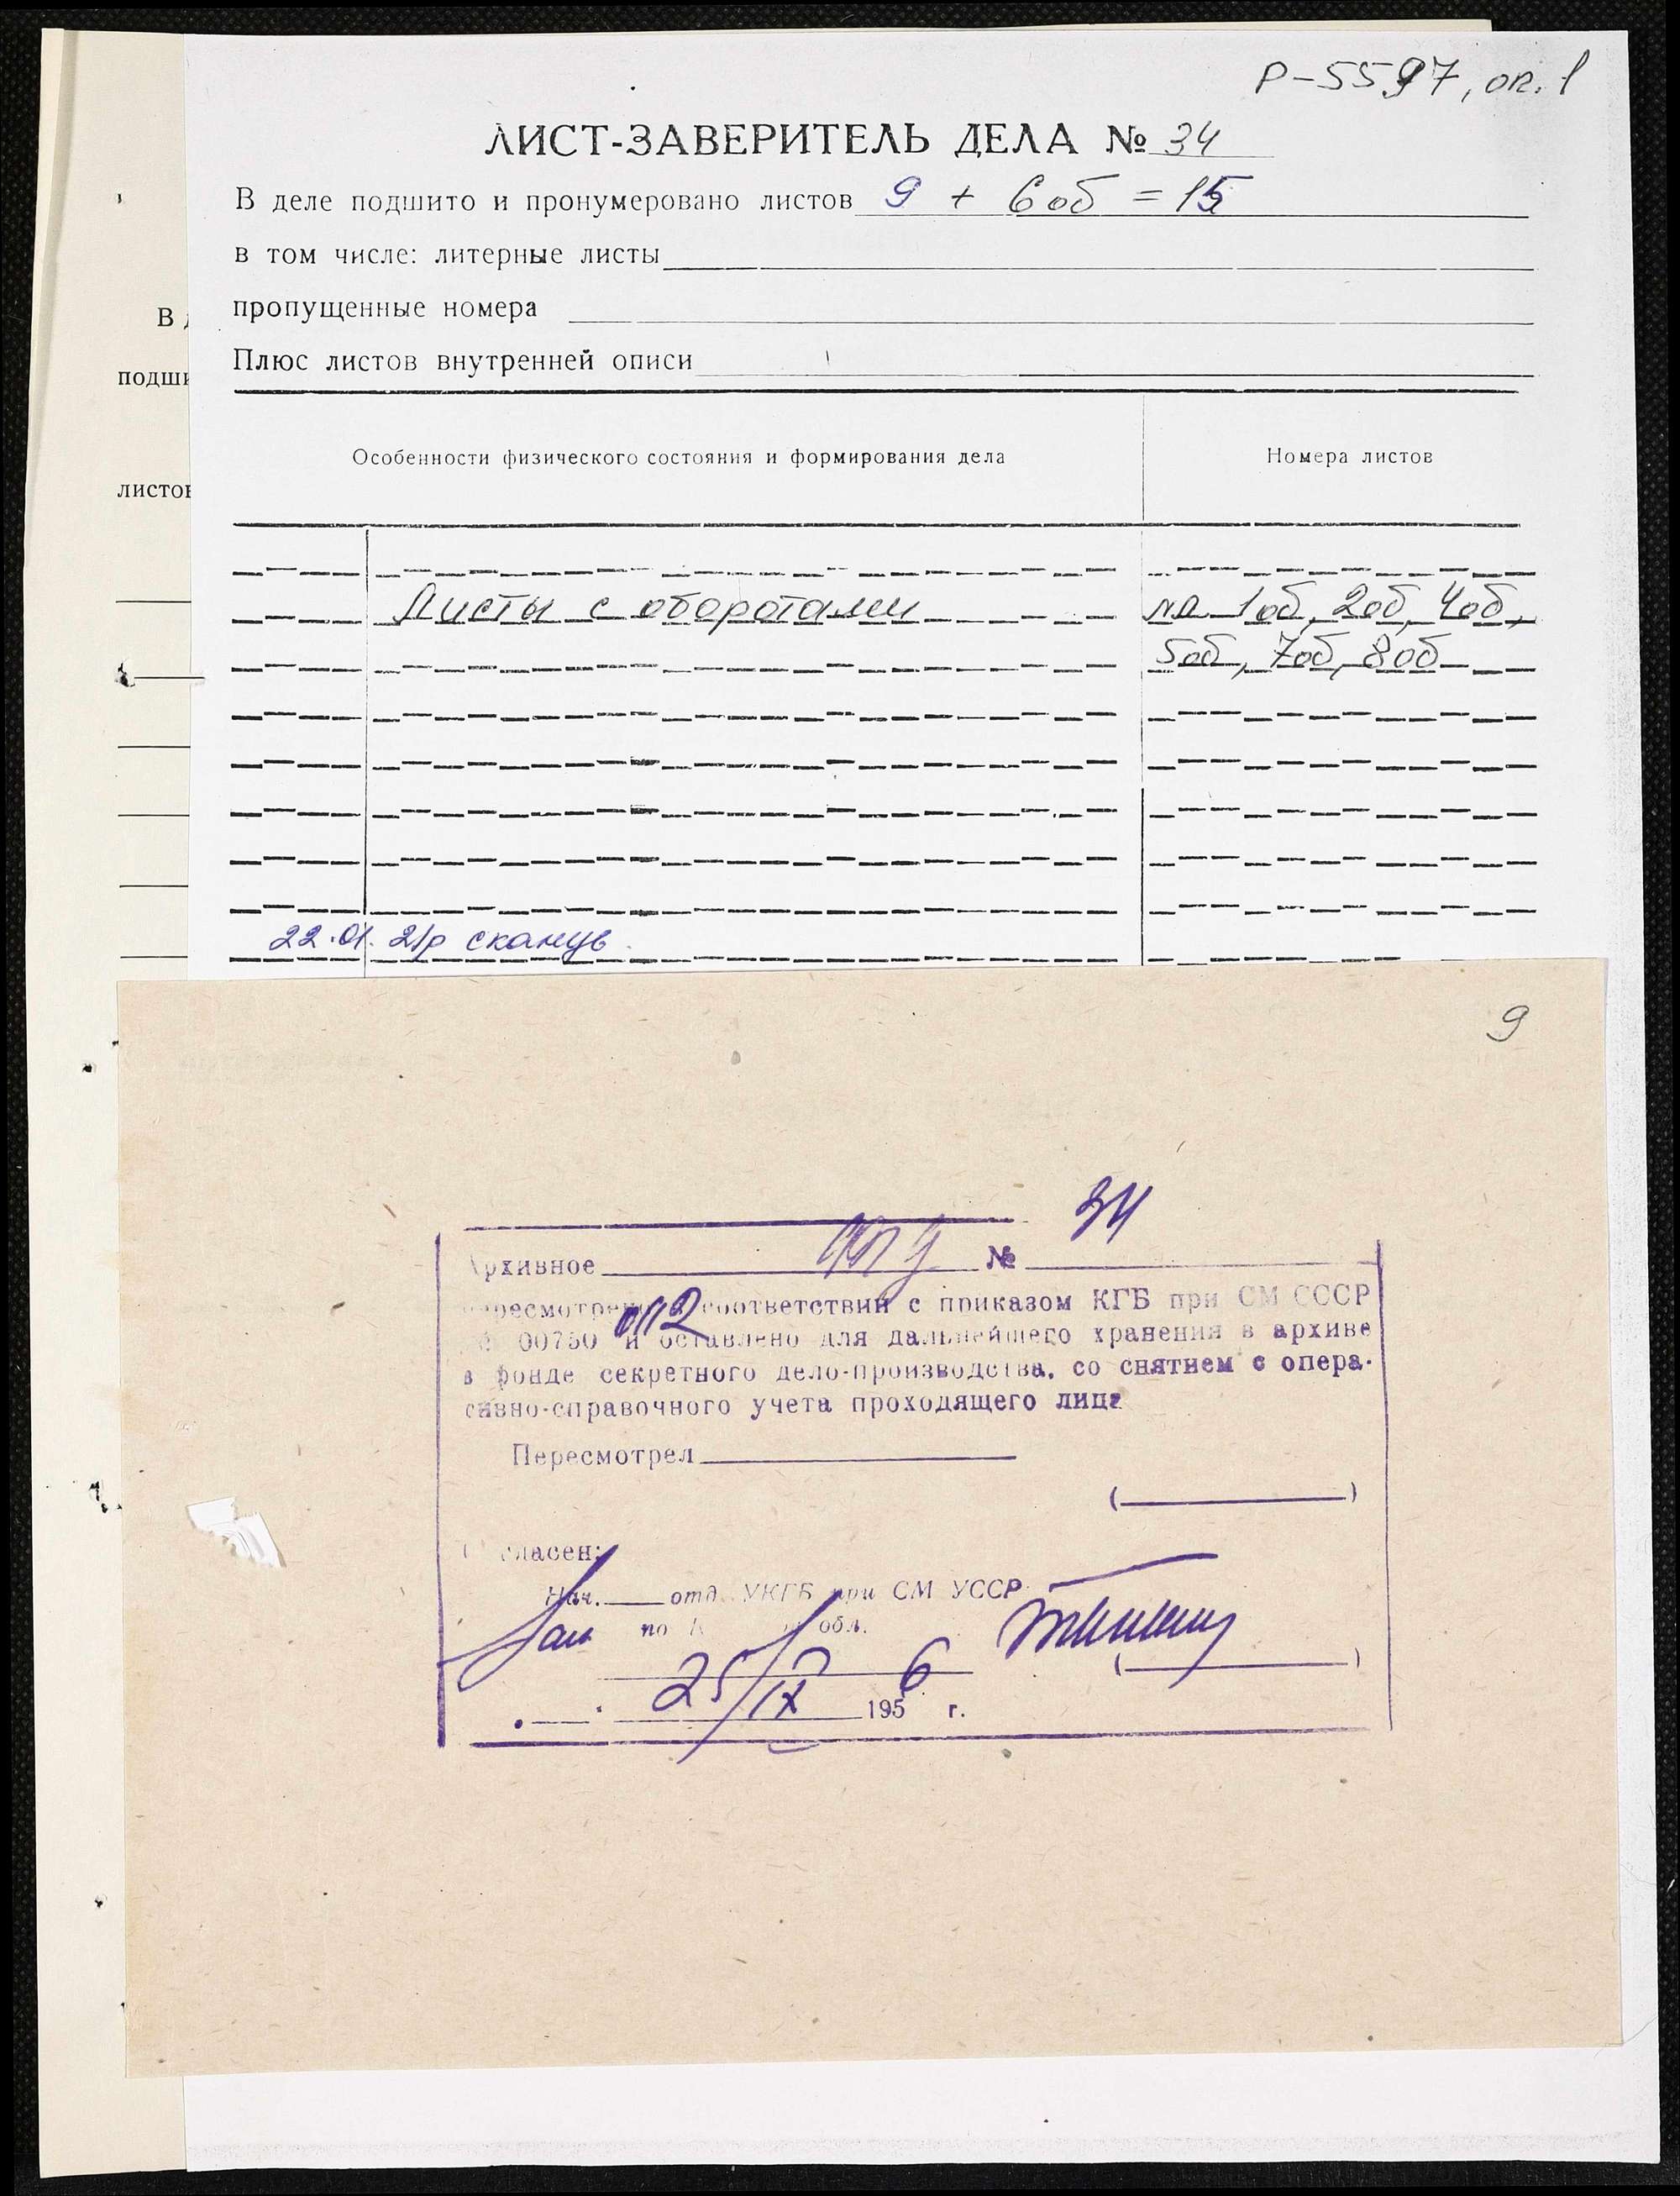 Р-5597, оп. 1
ЛИСТ-ЗАВЕРИТЕЛЬ ДЕЛА № 34
В деле подшито и пронумеровано листов 9 + 6 об = 15
в том числе: литерные листы
пропущенные номера
Плюс листов внутренней описи
Особенности физического состояния и формирования дела
Номера листов
Листы с оборотами
лл 1об, 2об, 4об,
5об, 7об, 8об
22.01.21р сканув.
В
подши
листов
9
34
Архивное №
соответствии с приказом КГБ при СМ СССР
00750 и оставлено для дальнейшего хранения в архиве
в фонде секретного дело-производства, со снятием с опера-
тивно-справочного учета проходящего лица
Пересмотрел
( )
гласен:
Нач. отд. УКГБ при СМ УССР
Зам по обл.
( )
25/IX 1956 г.